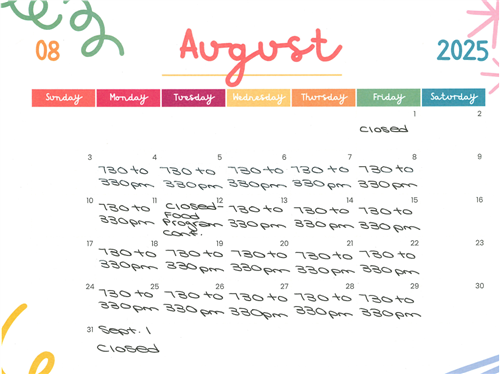 August
08
2025
Sunday Monday Tuesday Wednesday Thursday Friday Saturday
1 2
closed
3 4 5 6 7 8 9
730 to 730 to 730 to 730 to 730 to
330pm 330pm 330pm 330pm 330pm
10 11 12 13 14 15 16
730 to closed- 730 to 730 to 730 to
330pm Food 330pm 330pm 330pm
Program
conf.
17 18 19 20 21 22 23
730 to 730 to 730 to 730 to 730 to
330pm 330pm 330pm 330pm 330pm
24 25 26 27 28 29 30
730 to 730 to 730 to 730 to 730 to
330pm 330pm 330pm 330pm 330pm
31 Sept. 1
closed